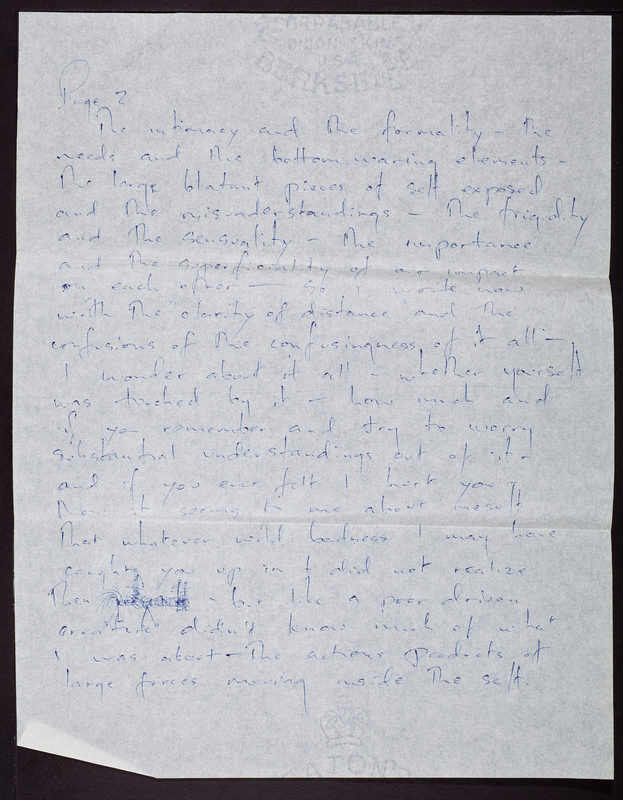 Page 2
The intimacy and the formality - the
needs and the bottom waring elements -
The large blatant pieces of self exposed
and the misunderstandings - The frigidity
and the sensuality - the importance
and the superficiality of our impact
on each other - So I write now
with the clarity of distance and the
confusions of the confusingness of it all -
I wonder about it all - whether yourself
was touched by it - how much and
if you remember and try to worry
substantial understandings out of it -
and if you ever felt I hurt you -
Now it seems to me about meself
That whatever wild badness I may have
caught you up in I did not realize
Then - but like a poor driven
creature didn't know much of what
I was about - The actions products of
large forces moving inside the self.
CORRASABLE
ONION SKIN
U.S.A
BERKSHIRE
EATON'S